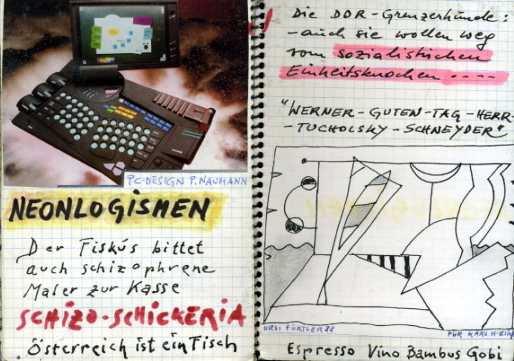 PC-DESIGN P. NAUMANN
NEONLOGISMEN
Der Fiskus bittet
auch schizophrene
Maler zur Kasse
SCHIZO-SCHICKERIA
Österreich ist ein Fisch
Die DDR-Grenzerhunde:
- auch sie wollen weg
vom sozialistischen
Einheitsknochen ----
"WERNER-GUTEN-TAG-HERR-
-TUCHOLSKY-SCHNEYDER"
FÜR KARL HEINZ
Espresso Vino Bambus Gobi